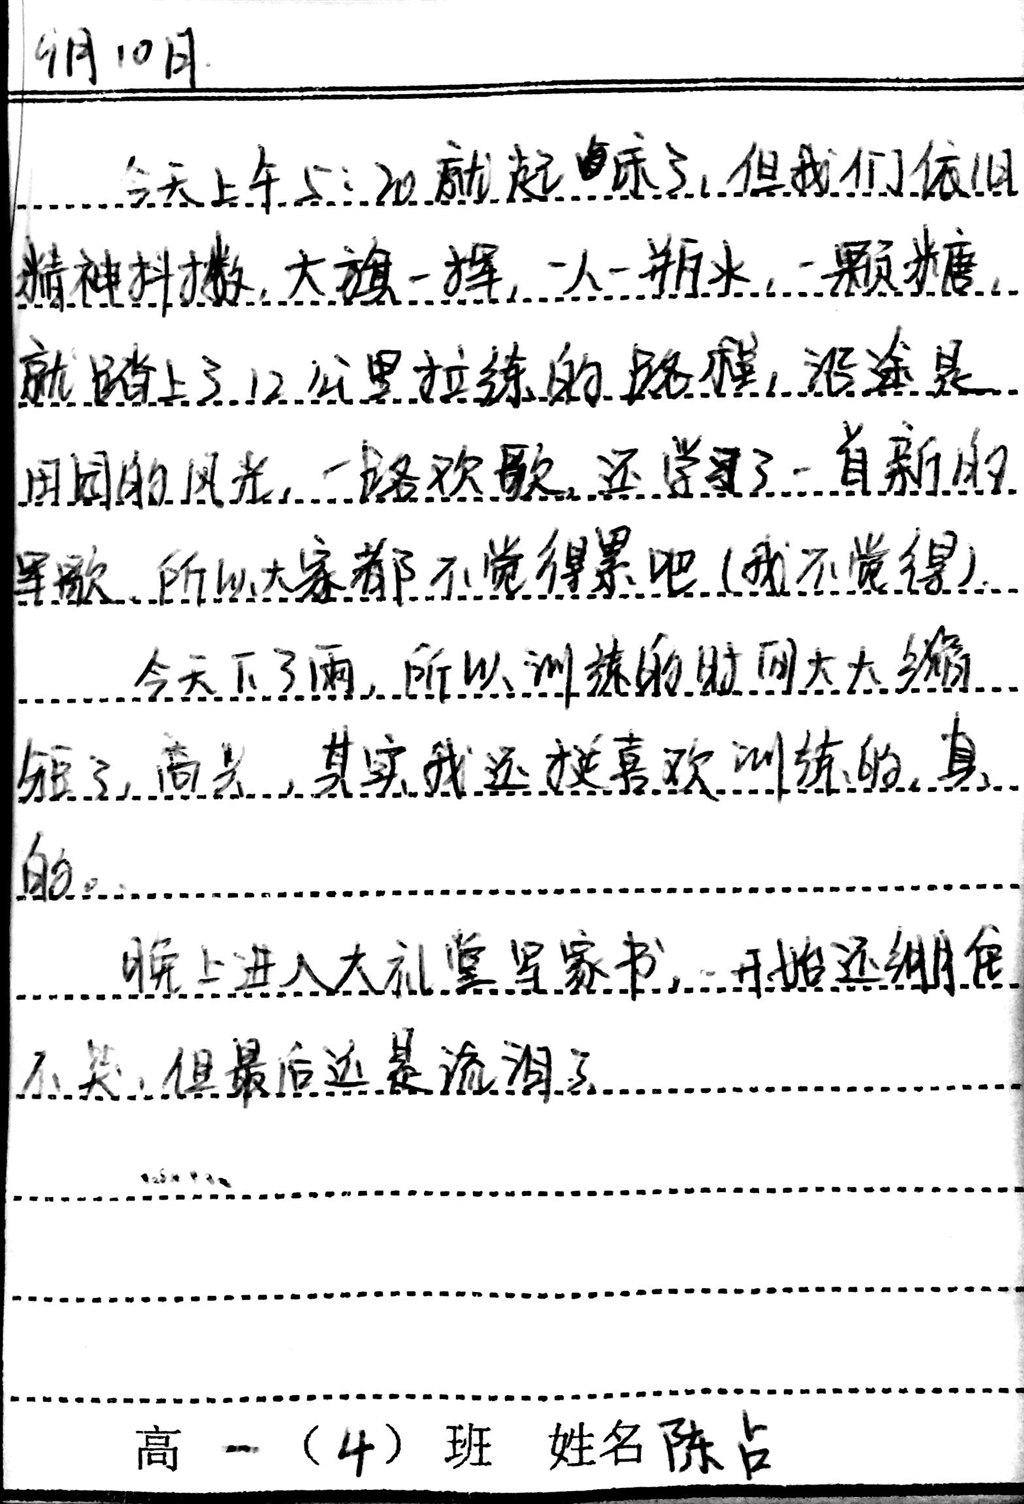 9月10日
今天上午5:20就起床了,但我们依旧
精神抖擞,大旗一挥,一人一瓶水,一颗糖,
就踏上了12公里拉练的路程,沿途是
田园的风光,一路欢歌,还学习了一首新的
军歌,所以大家都不觉得累吧(我不觉得).
今天下了雨,所以训练的时间大大缩
短了,高兴,其实我还挺喜欢训练的,真
的。
晚上进入大礼堂写家书,一开始还绷住
不哭,但最后还是流泪了
......
高一(4)班 姓名陈占